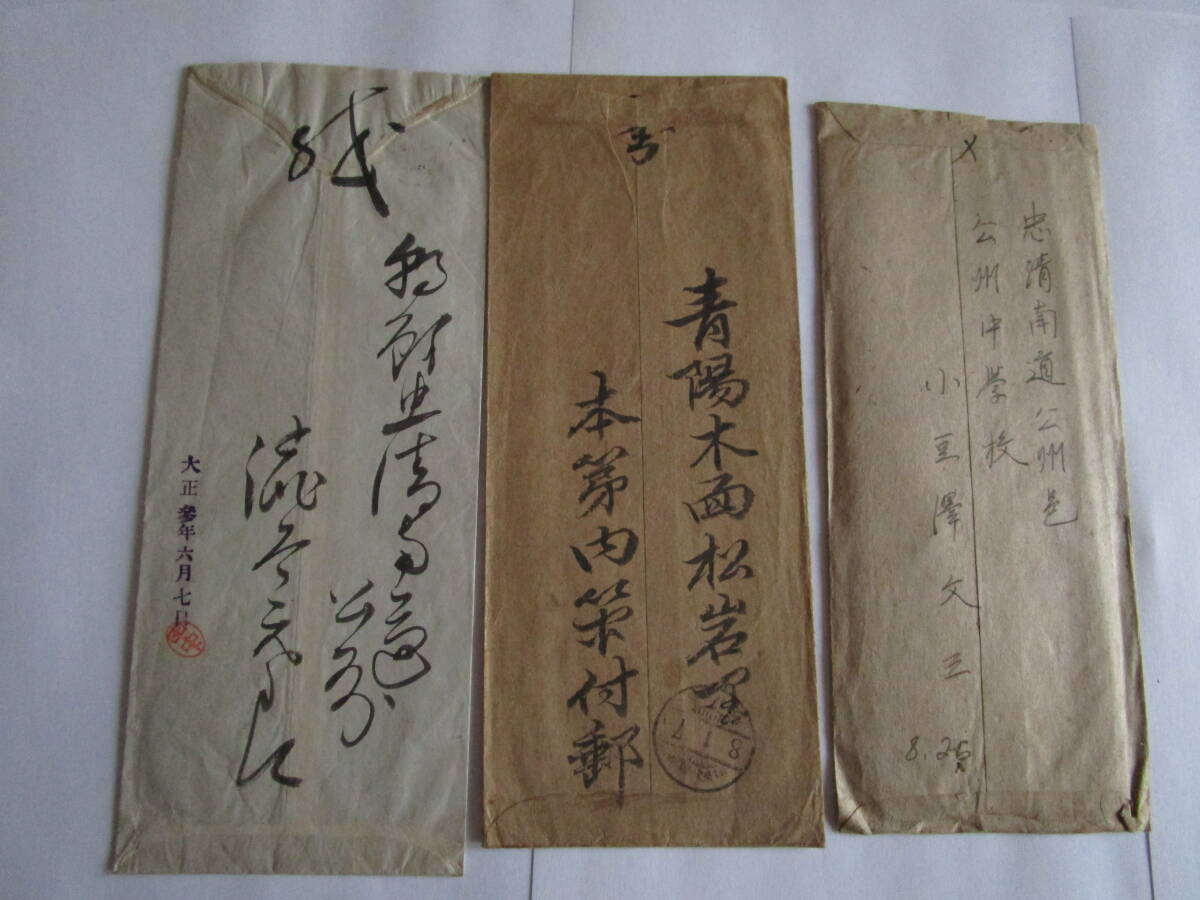 緘
朝鮮忠清南道
公州
大正參年六月七日
青陽木面松岩里
本第内
付郵
〆
忠清南道公州邑
公州中学校
小豆澤文三